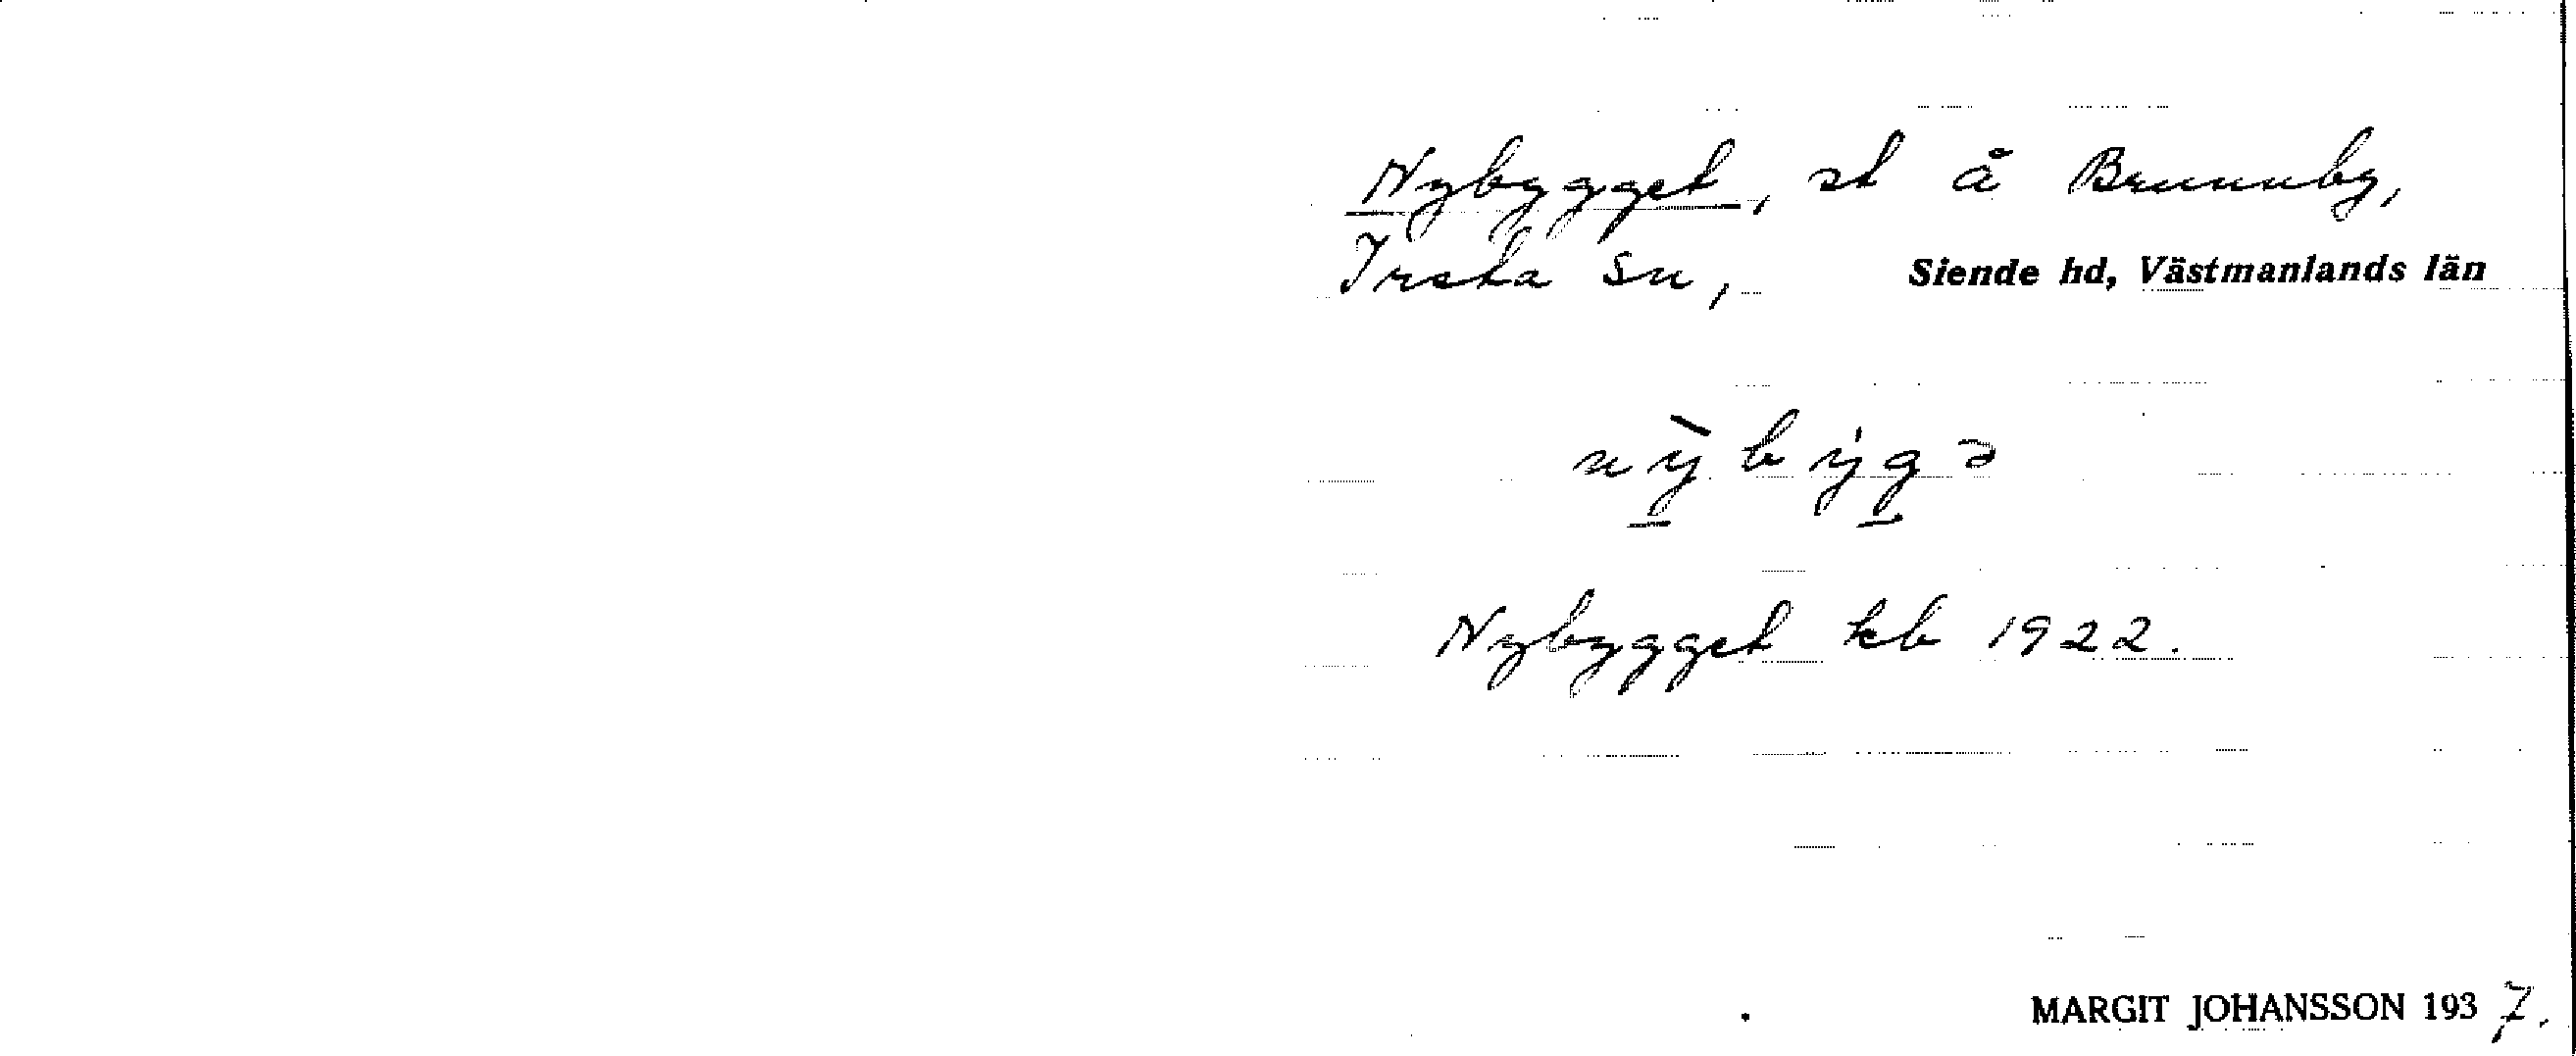 Nybygget, st å Brunnby,
Irsta sn, Siende hd, Västmanlands län
nỳby̍gə
Nybygget kb 1922.
MARGIT JOHANSSON 1937.